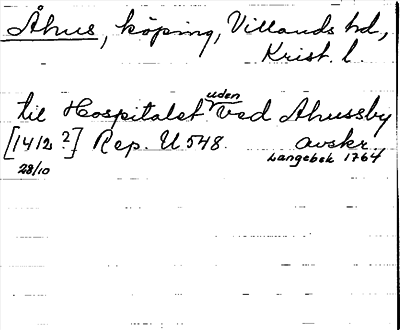 Åhus, köping, Villands hd,
Krist. l.
til Hospitalet uden ved Ahussby
[1412?] Rep. U 548. avskr.
28/10 Langebek 1764